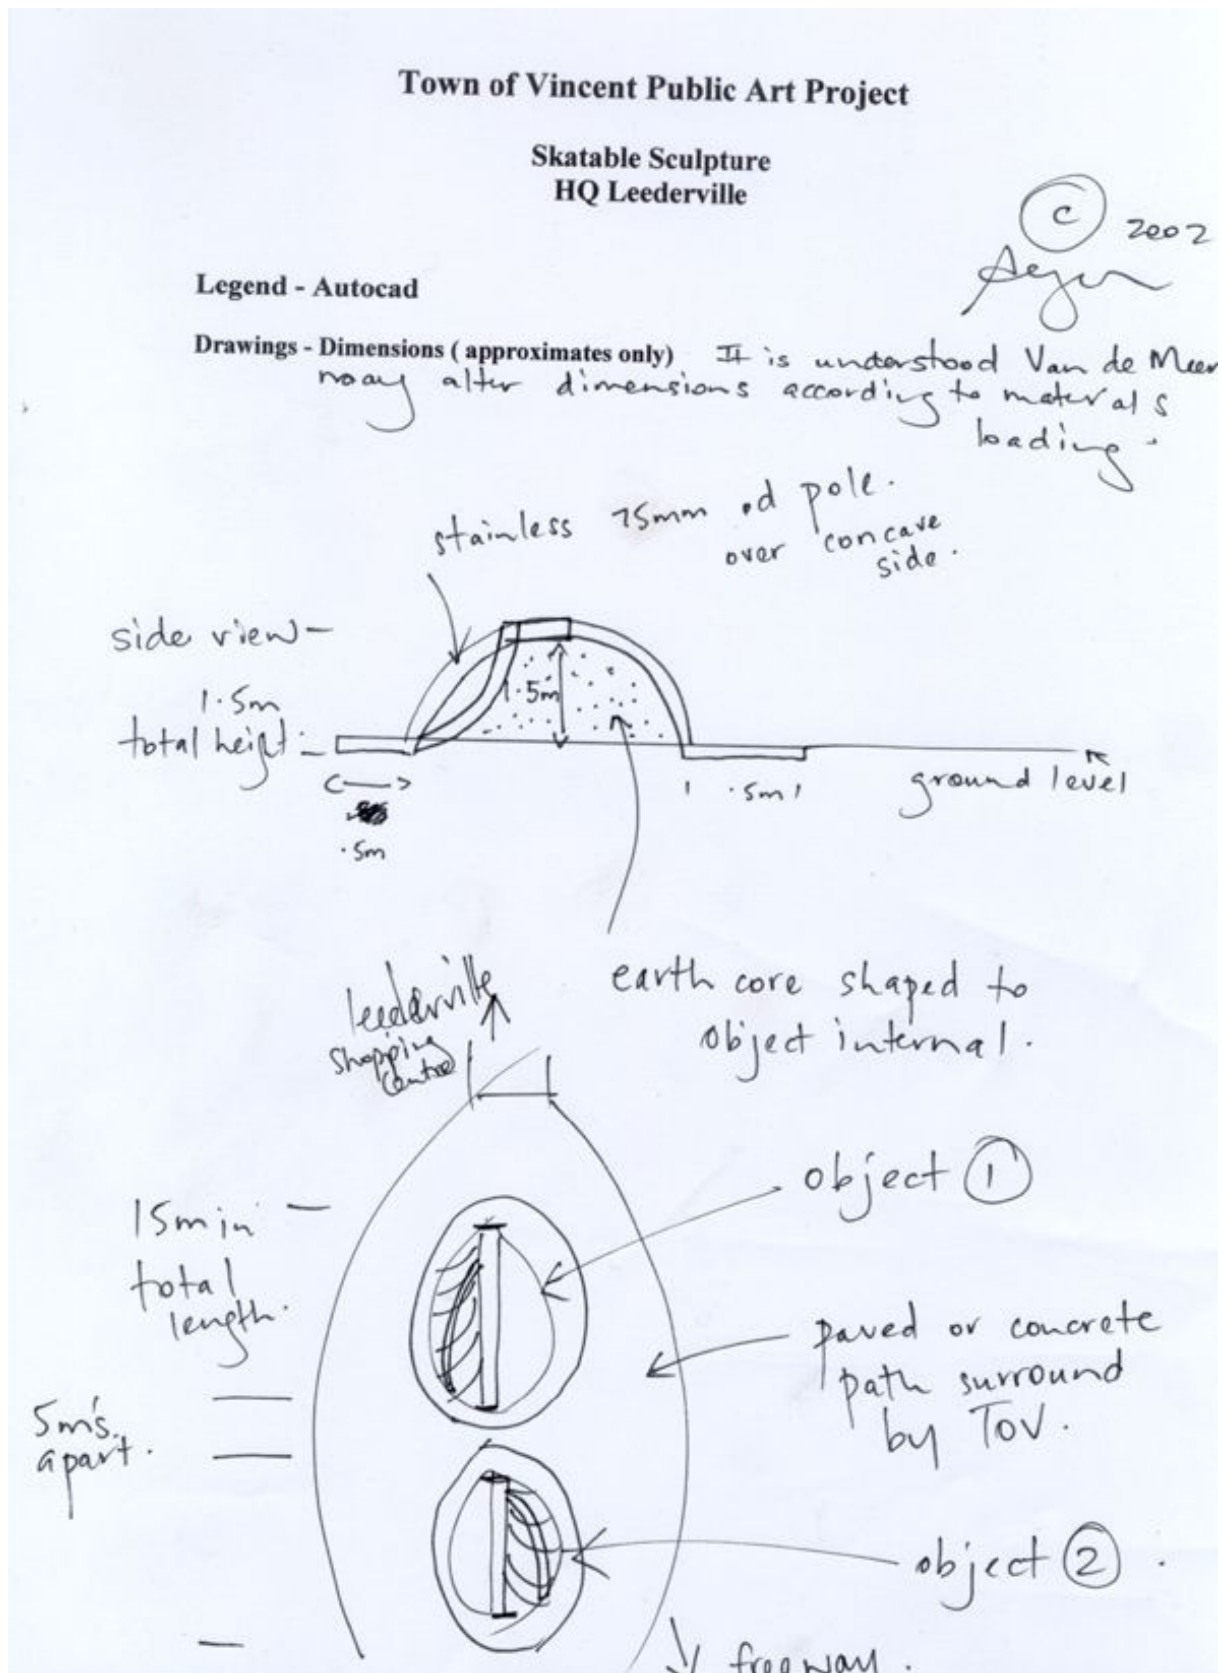 Town of Vincent Public Art Project
Skatable Sculpture
HQ Leederville
© 2002
Legend - Autocad
Drawings - Dimensions ( approximates only) It is understood Van de Meer
may alter dimensions according to materals
loading.
stainless 75mm od pole.
over concave
side.
side view -
1.5m
total height -
1.5m
.5m
.5m
ground level
earth core shaped to
object internal.
leederville
shopping
centre
object 1
15m in
total
length.
paved or concrete
path surround
by TOV.
5m's.
apart.
object 2
freeway.